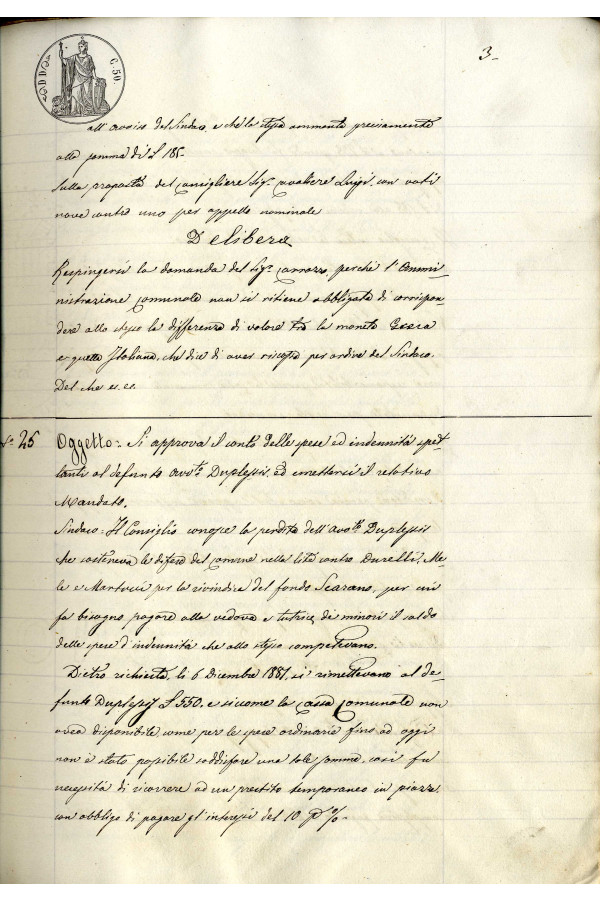 3-
DD C. 50.
all'avviso del Sindaco, e che la stessa ammonta precisamente
alla somma di £ 185-
Sulla proposta del Consigliere Sig.r Cavaliere Luigi, con voti
nove contro uno per appello nominale
Delibera
Respingersi la domanda del Sig.r Carrozzo, perché l'Ammi-
nistrazione Comunale non si ritiene obbligata di corrispon-
dere allo stesso la differenza di valore tra la moneta
e quella Italiana, che dice di aver riscossa per ordine del Sindaco.
Del che es. es.
N.o 25 Oggetto: Si approva il conto delle spese ed indennità spet-
tanti al defunto Avv.to Duplessis, ed emettersi il relativo
Mandato.
Sindaco: Il Consiglio conosce la perdita dell'Avv.to Duplessis
che sosteneva le difese del Comune nella lite contro Durelli, Me-
le e Martucci per la rivindica del fondo Scarano, per cui
fa bisogno pagare alla vedova e tutrice de' minori il saldo
delle spese d'indennità che allo stesso competevano.
Dietro richiesta, li 6 Dicembre 1881, si rimettevano al de-
funto Duplessis £ 550. e siccome la Cassa Comunale non
avea disponibile, come per le spese ordinarie fino ad oggi
non è stato possibile soddisfare una tale somma, così fu
necessità di ricorrere ad un prestito temporaneo in piazza
con obbligo di pagare gl'interessi del 10 p %-